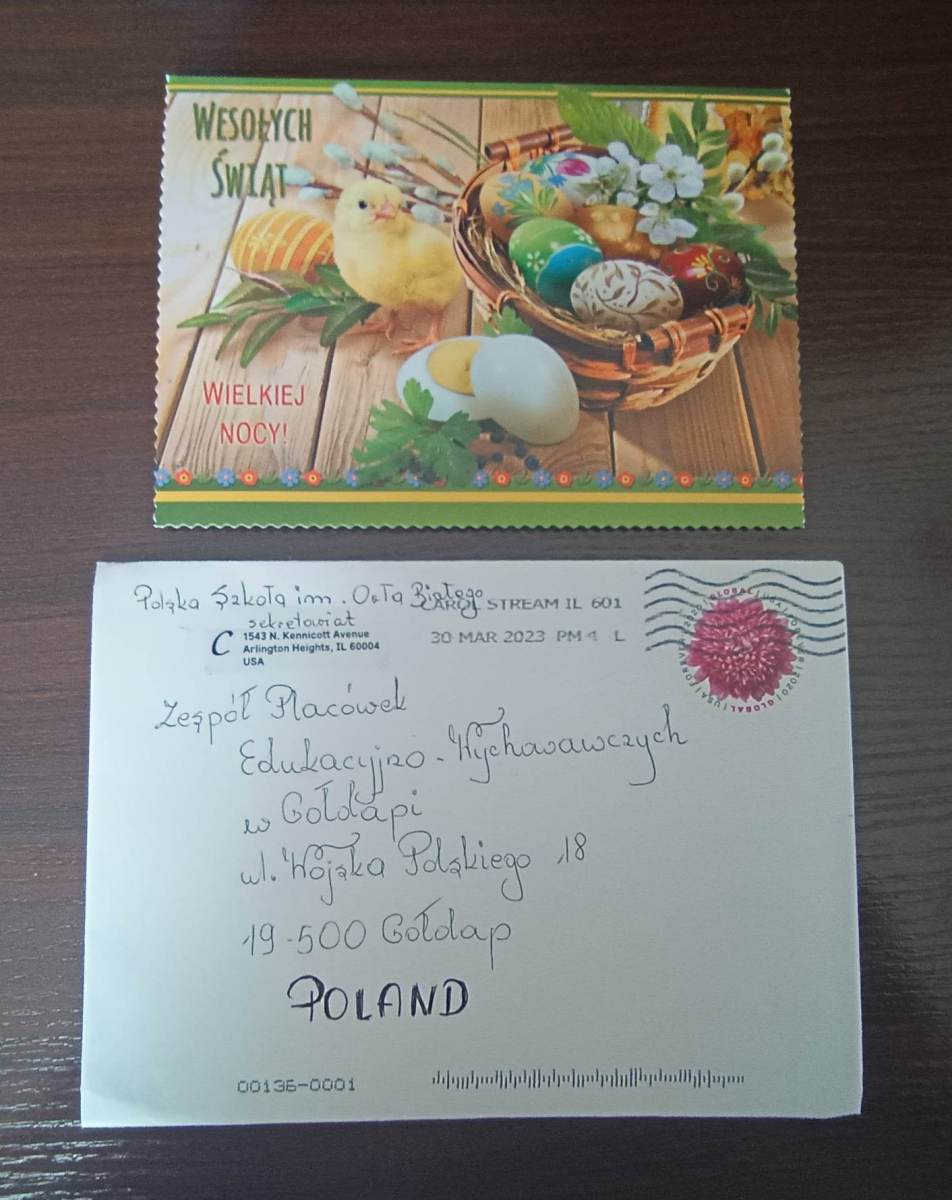 WESOŁYCH
ŚWIĄT
WIELKIEJ
NOCY!
Polska Szkoła im. Orła Białego
CAROL STREAM IL 601
sekretariat
30 MAR 2023 PM 4 L
C
1543 N. Kennicott Avenue
Arlington Heights, IL 60004
USA
GLOBAL | USA | FOREVER | 2020 | GLOBAL | USA | FOREVER | 2020 |
Zespół Placówek
Edukacyjno-Wychowawczych
w Gołdapi
ul. Wojska Polskiego 18
19-500 Gołdap
POLAND
00136-0001